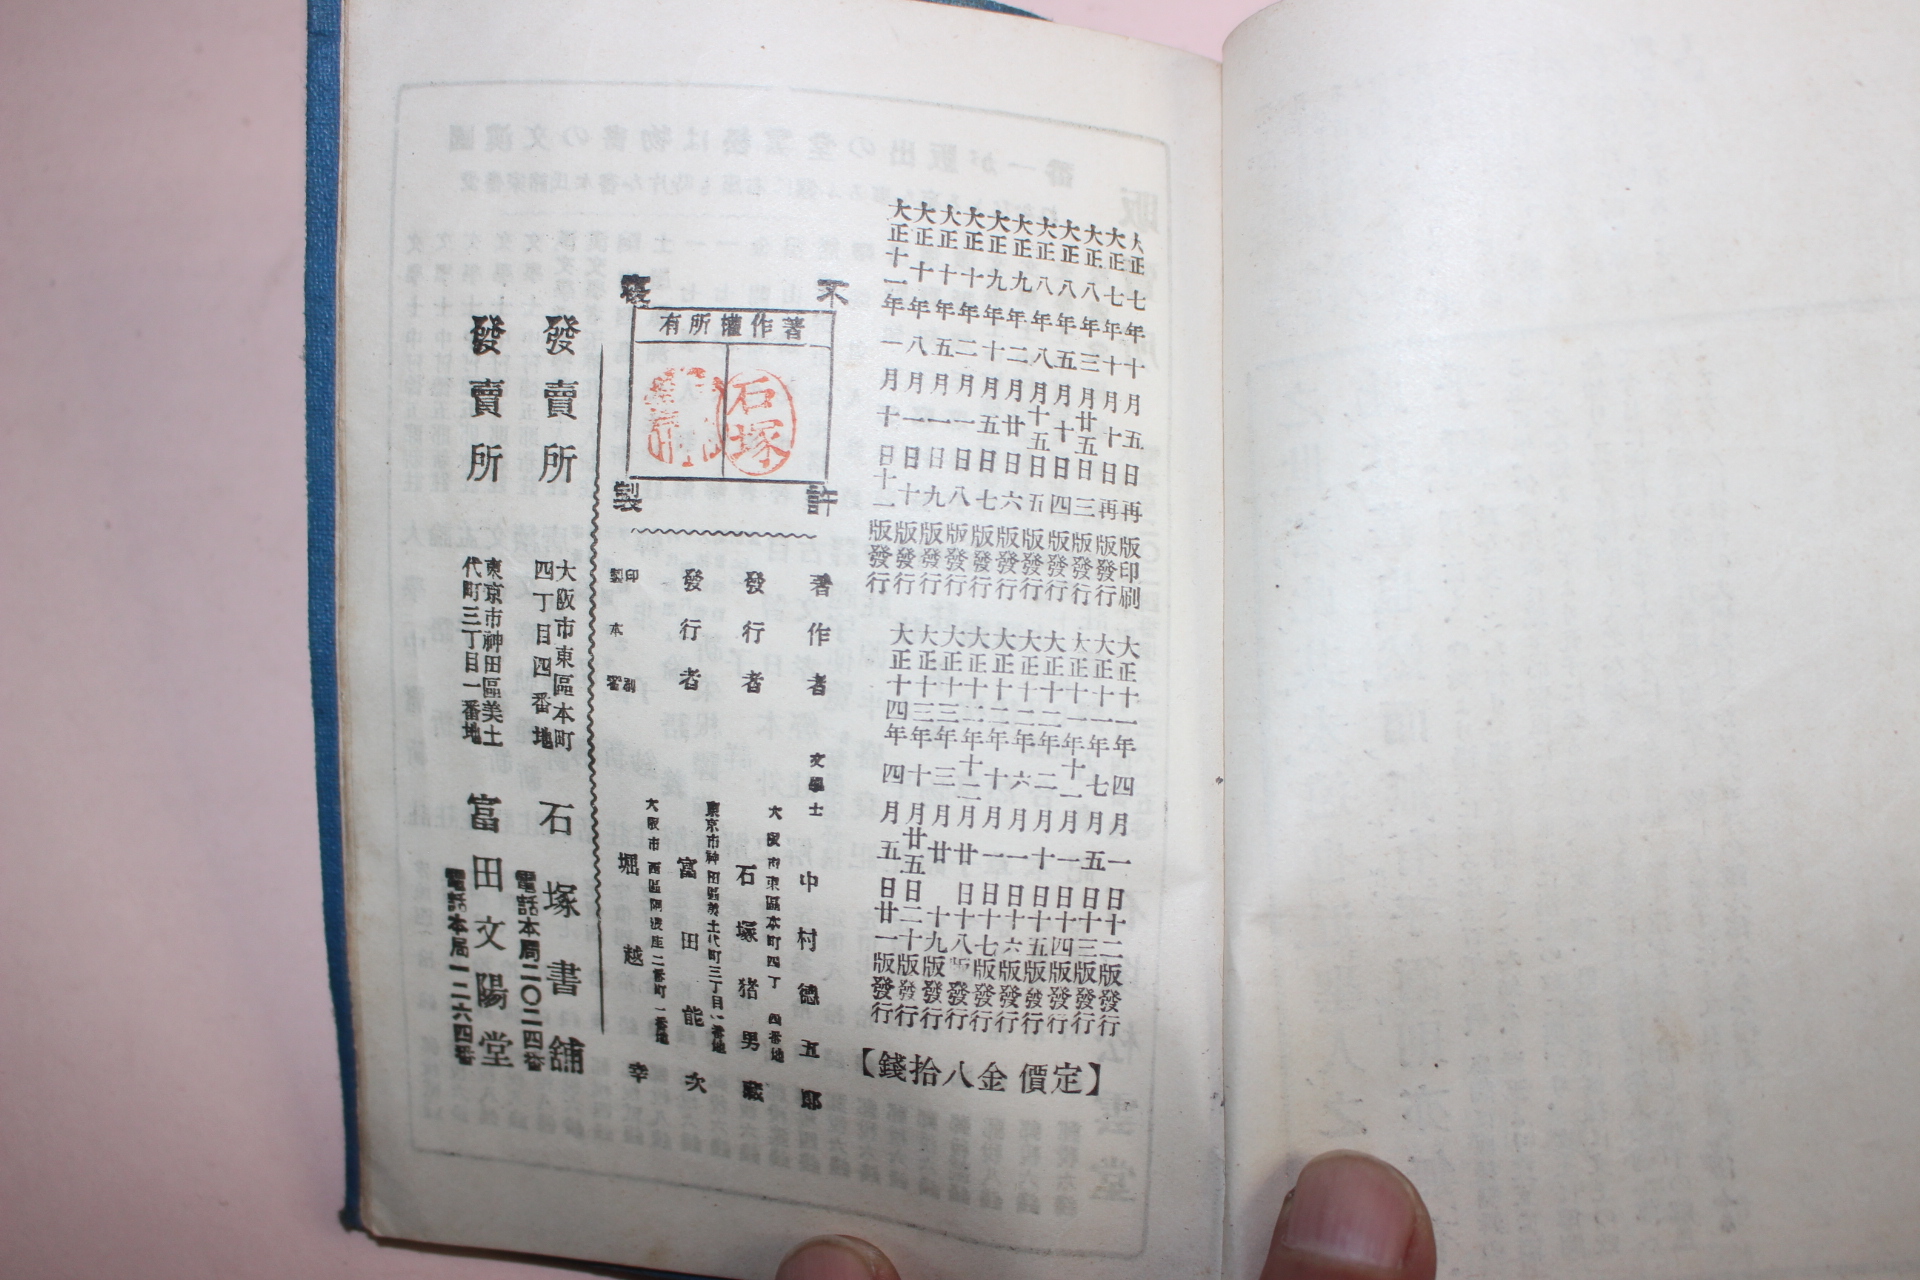 大正七年十月五日再版印刷
大正七年十月十日再版發行
大正八年三月廿五日三版發行
大正八年五月十日四版發行
大正八年八月十五日五版發行
大正九年二月廿日六版發行
大正九年十月五日七版發行
大正十年二月一日八版發行
大正十年五月一日九版發行
大正十年八月一日十版發行
大正十一年一月十日十一版發行
大正十一年四月一日十二版發行
大正十一年七月五日十三版發行
大正十一年十一月一日十四版發行
大正十二年二月十日十五版發行
大正十二年六月一日十六版發行
大正十二年十月一日十七版發行
大正十二年十二月廿日十八版發行
大正十三年三月廿日十九版發行
大正十三年十月廿五日二十版發行
大正十四年四月五日廿一版發行
【定價金八拾錢】
不許複製
著作權所有
石塚
著作者 文學士 中村德五郎
大阪市東區本町四丁四番地
發行者 石塚猪男藏
東京市神田區美土代町三丁目一番地
發行者 富田能次
大阪市西區阿波座二番町一番地
印刷製本者 堀越幸
發賣所 大阪市東區本町四丁目四番地 石塚書舖 電話本局二〇二四番
發賣所 東京市神田區美土代町三丁目一番地 富田文陽堂 電話本局一二六四番